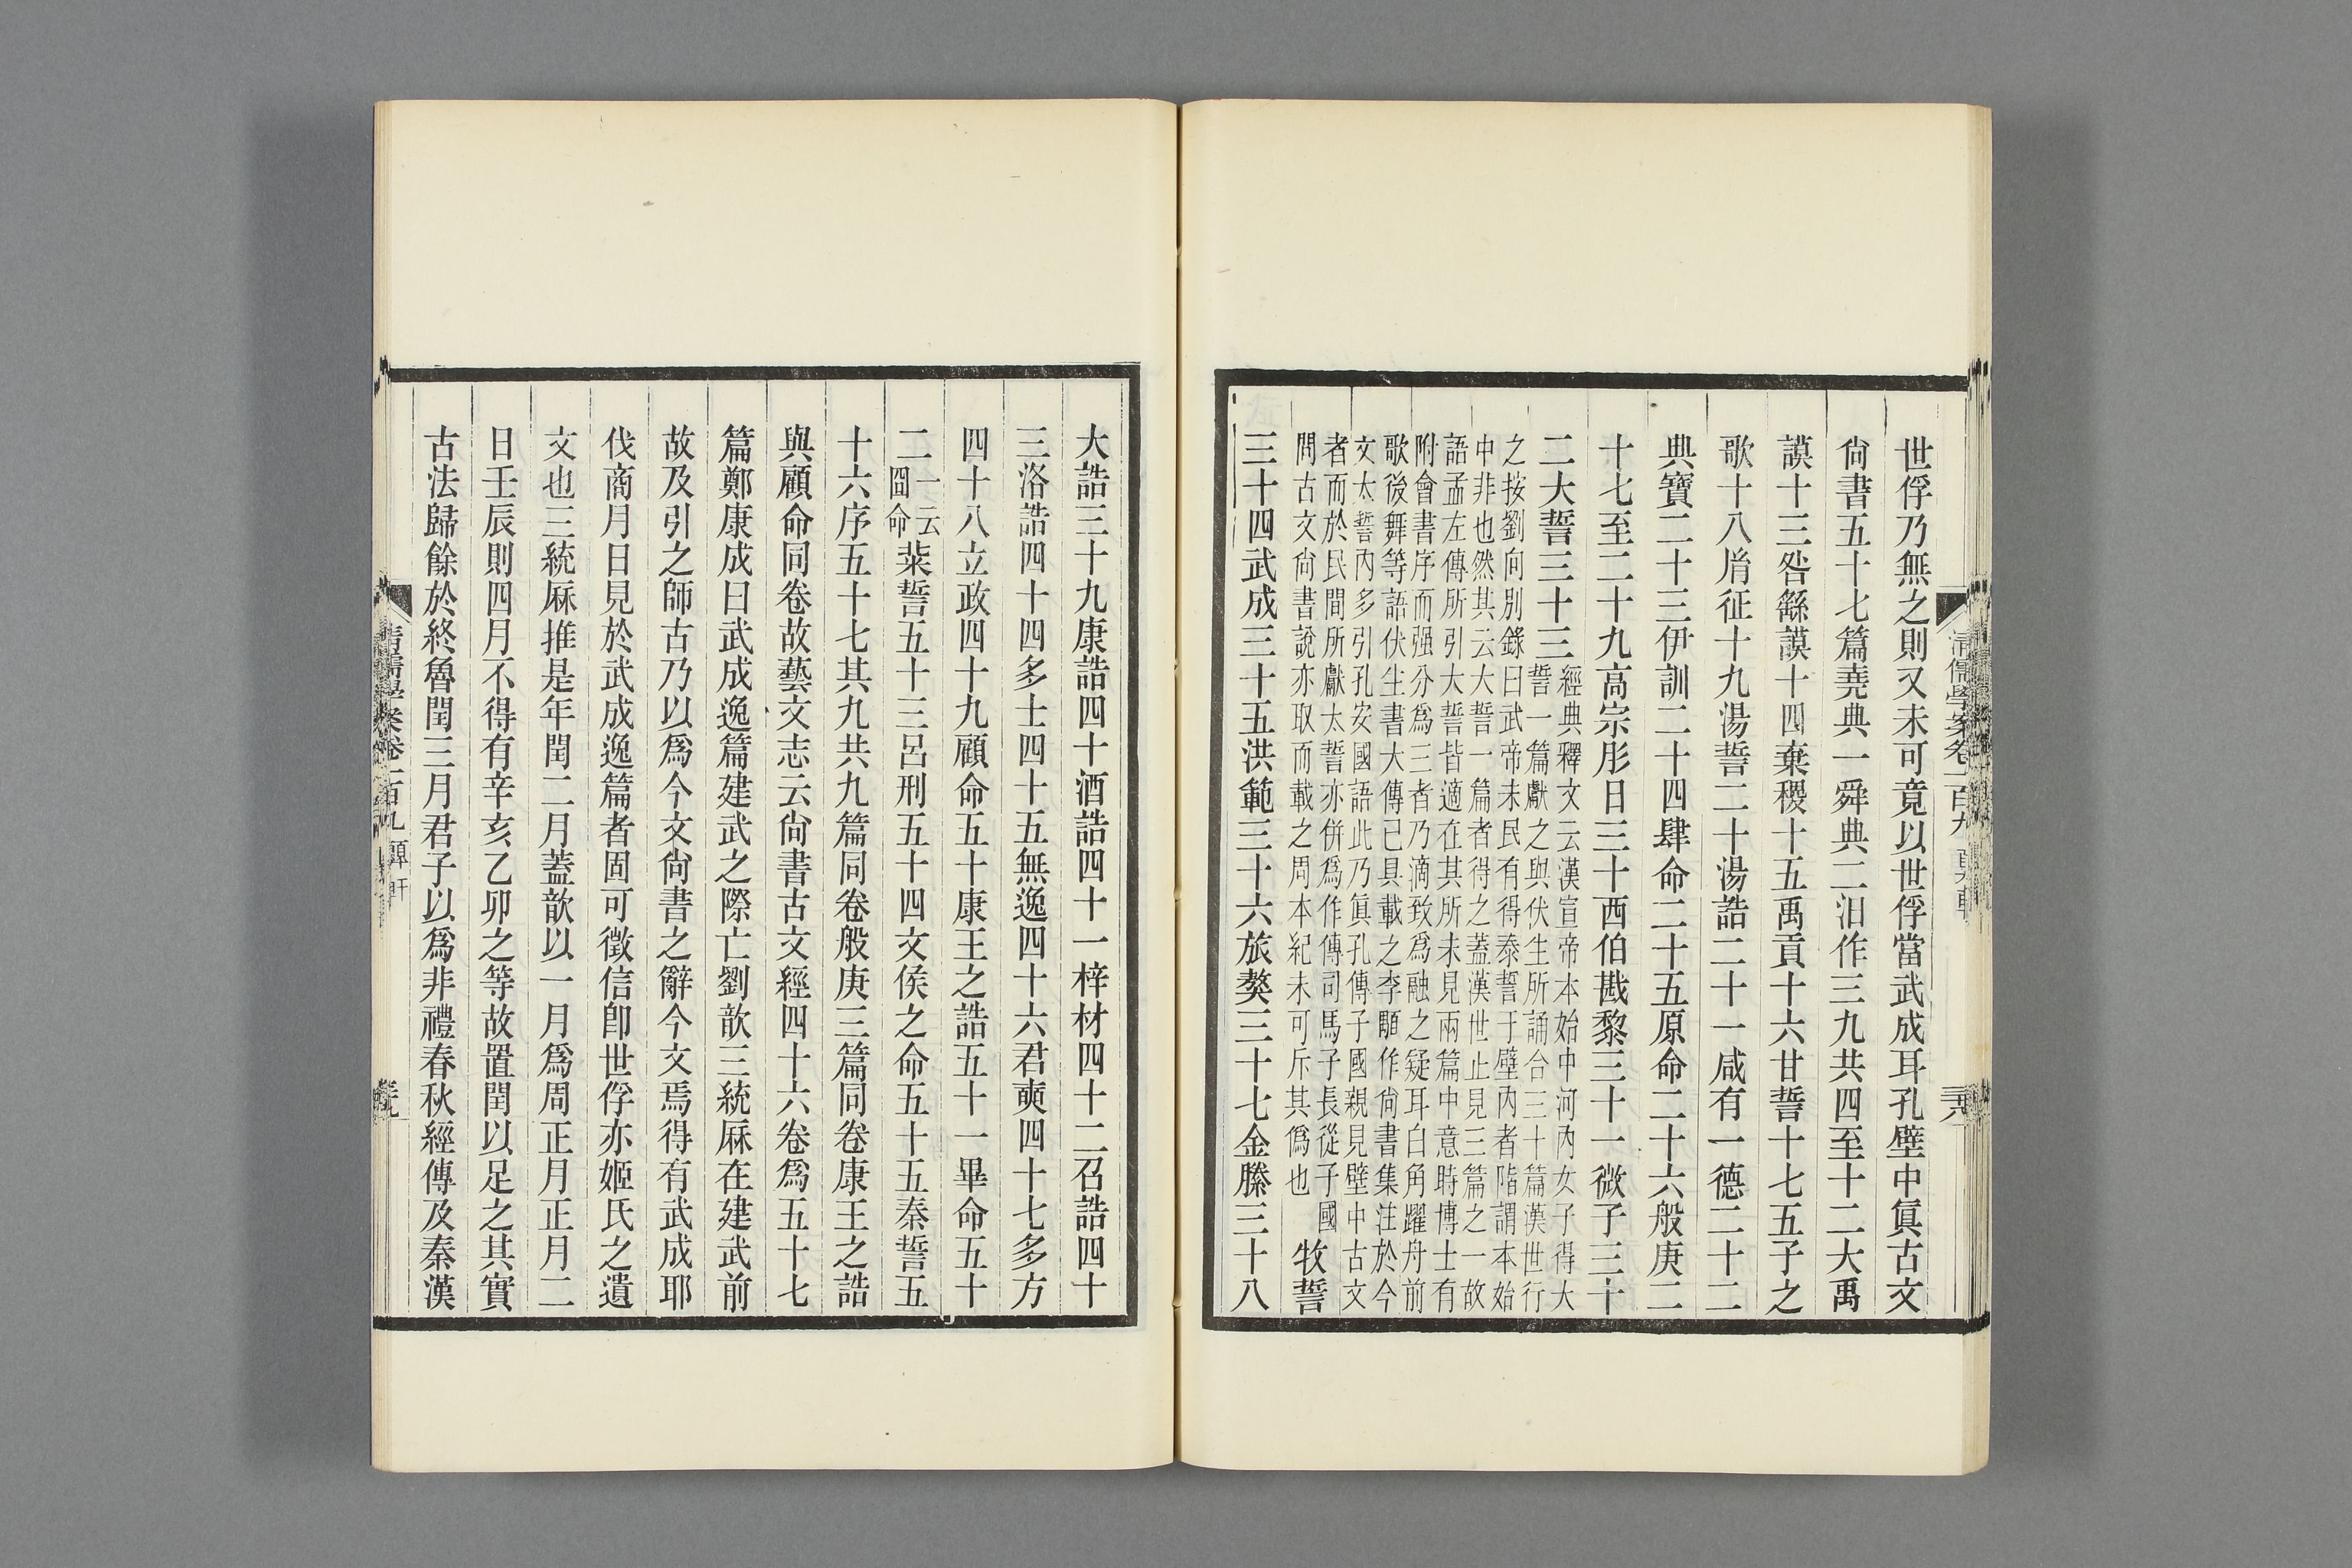 世俘乃無之則又未可竟以世俘當武成耳孔壁中眞古文
尙書五十七篇堯典一舜典二汩作三九共四至十二大禹
謨十三咎繇謨十四棄稷十五禹貢十六甘誓十七五子之
歌十八胤征十九湯誓二十湯誥二十一咸有一德二十二
典寶二十三伊訓二十四肆命二十五原命二十六般庚二
十七至二十九高宗肜日三十西伯戡黎三十一微子三十
二大誓三十三
經典釋文云漢宣帝本始中河內女子得大
誓一篇獻之與伏生所誦合三十篇漢世行
之按劉向別錄曰武帝末民有得泰誓于壁內者陸謂本始
中非也然其云大誓一篇者得之蓋漢世止見三篇之一故
語孟左傳所引大誓皆適在其所未見兩篇中意時博士有
附會書序而强分爲三者乃滴致爲融之疑耳白角躍舟前
歌後舞等語伏生書大傳已具載之李顒作尙書集注於今
文太誓內多引孔安國語此乃眞孔傳子國親見壁中古文
者而於民間所獻太誓亦併爲作傳司馬子長從子國
問古文尙書說亦取而載之周本紀未可斥其僞也
牧誓
三十四武成三十五洪範三十六旅獒三十七金縢三十八
清儒學案卷一百九
三十八
大誥三十九康誥四十酒誥四十一梓材四十二召誥四十
三洛誥四十四多士四十五無逸四十六君奭四十七多方
四十八立政四十九顧命五十康王之誥五十一畢命五十
二一云冏命粊誓五十三呂刑五十四文侯之命五十五秦誓五
十六序五十七其九共九篇同卷般庚三篇同卷康王之誥
與顧命同卷故藝文志云尙書古文經四十六卷爲五十七
篇鄭康成曰武成逸篇建武之際亡劉歆三統厤在建武前
故及引之師古乃以爲今文尙書之辭今文焉得有武成耶
伐商月日見於武成逸篇者固可徵信卽世俘亦姬氏之遺
文也三統厤推是年閏二月蓋歆以一月爲周正月正月二
日壬辰則四月不得有辛亥乙卯之等故置閏以足之其實
古法歸餘於終魯閏三月君子以爲非禮春秋經傳及秦漢
清儒學案卷一百九